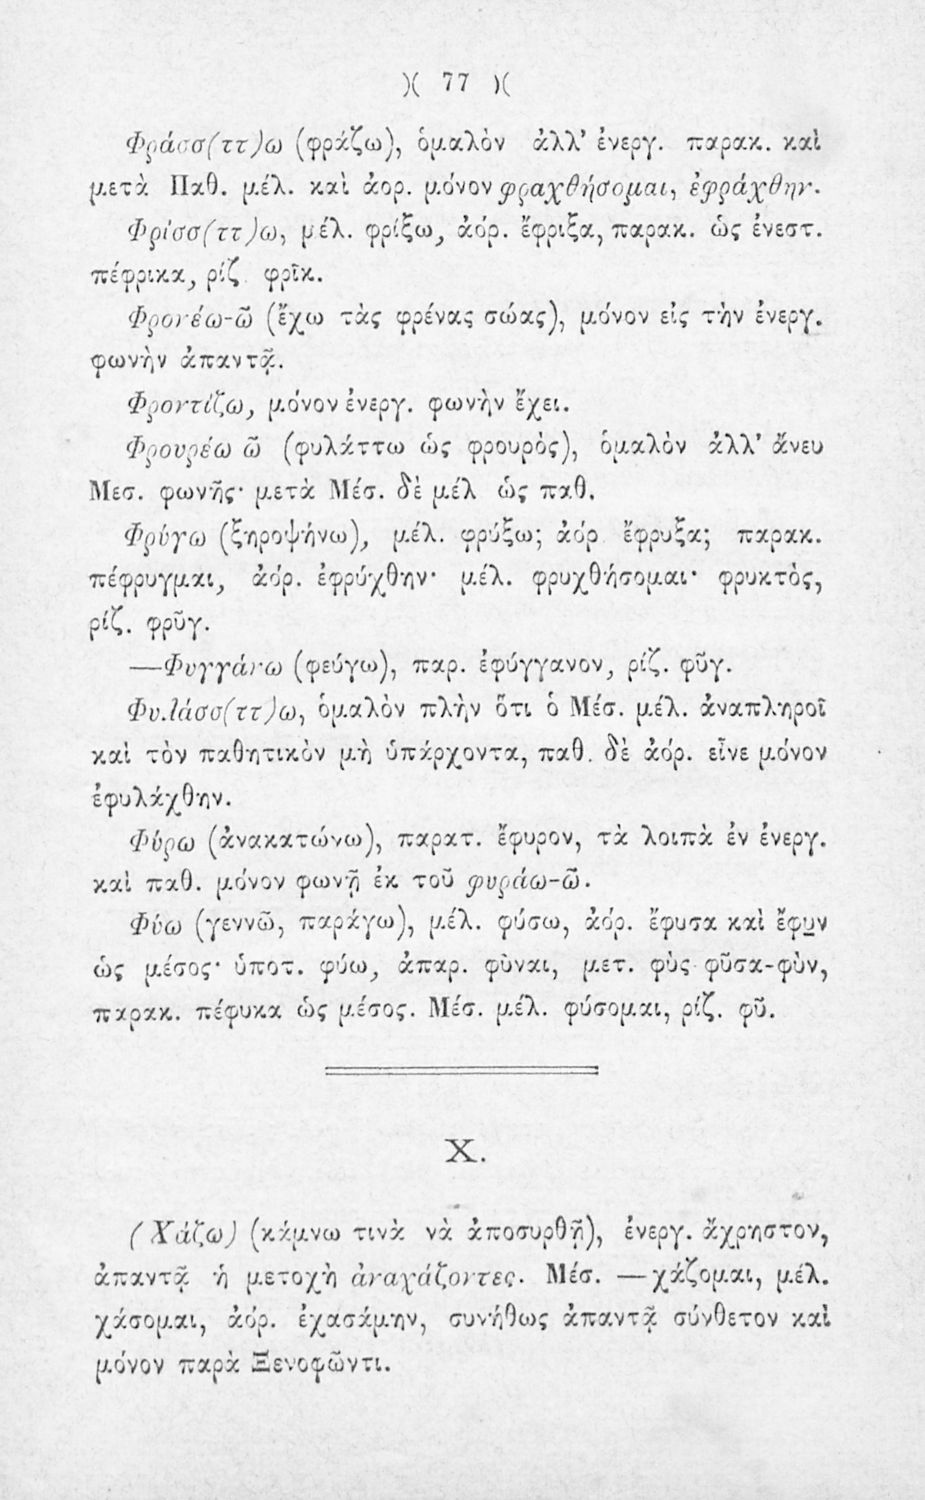 )( 77 )(
Φράσσ(ττ)ω (φράζω), ὁμαλὸν ἀλλ' ἐνεργ. παρακ. καὶ
μετὰ Παθ. μέλ. καὶ ἀορ. μόνον φραχθήσομαι, ἐφράχθην.
Φρίσσ(ττ)ω, μέλ. φρίξω, ἀόρ. ἔφριξα, παρακ. ὡς ἐνεστ.
πέφρικα, ρίζ. φρῑκ.
Φρονέω-ῶ (ἔχω τὰς φρένας σώας), μόνον εἰς τὴν ἐνεργ.
φωνὴν ἀπαντᾷ.
Φροντίζω, μόνον ἐνεργ. φωνὴν ἔχει.
Φρουρέω ῶ (φυλάττω ὡς φρουρὸς), ὁμαλὸν ἀλλ' ἄνευ
Μεσ. φωνῆς· μετὰ Μέσ. δὲ μέλ ὡς παθ.
Φρύγω (ξηροψήνω), μέλ. φρύξω; ἀόρ ἔφρυξα; παρακ.
πέφρυγμαι, ἀόρ. ἐφρύχθην· μέλ. φρυχθήσομαι· φρυκτὸς,
ρίζ. φρῡγ.
—Φυγγάνω (φεύγω), παρ. ἐφύγγανον, ρίζ. φῦγ.
Φυλάσσ(ττ)ω, ὁμαλὸν πλὴν ὅτι ὁ Μέσ. μέλ. ἀναπληροῖ
καὶ τὸν παθητικὸν μὴ ὑπάρχοντα, παθ. δὲ ἀόρ. εἶνε μόνον
ἐφυλάχθην.
Φύρω (ἀνακατώνω), παρατ. ἔφυρον, τὰ λοιπὰ ἐν ἐνεργ.
καὶ παθ. μόνον φωνῇ ἐκ τοῦ φυράω-ῶ.
Φύω (γεννῶ, παράγω), μέλ. φύσω, ἀόρ. ἔφυσα καὶ ἔφυν
ὡς μέσος· ὑποτ. φύω, ἀπαρ. φῦναι, μετ. φὺς-φῦσα-φὺν,
παρακ. πέφυκα ὡς μέσος. Μέσ. μέλ. φύσομαι, ρίζ. φῦ.
Χ.
(Χάζω) (κάμνω τινὰ νὰ ἀποσυρθῇ), ἐνεργ. ἄχρηστον,
ἀπαντᾷ ἡ μετοχὴ ἀναχάζοντες. Μέσ. —χάζομαι, μέλ.
χάσομαι, ἀόρ. ἐχασάμην, συνήθως ἀπαντᾷ σύνθετον καὶ
μόνον παρὰ Ξενοφῶντι.